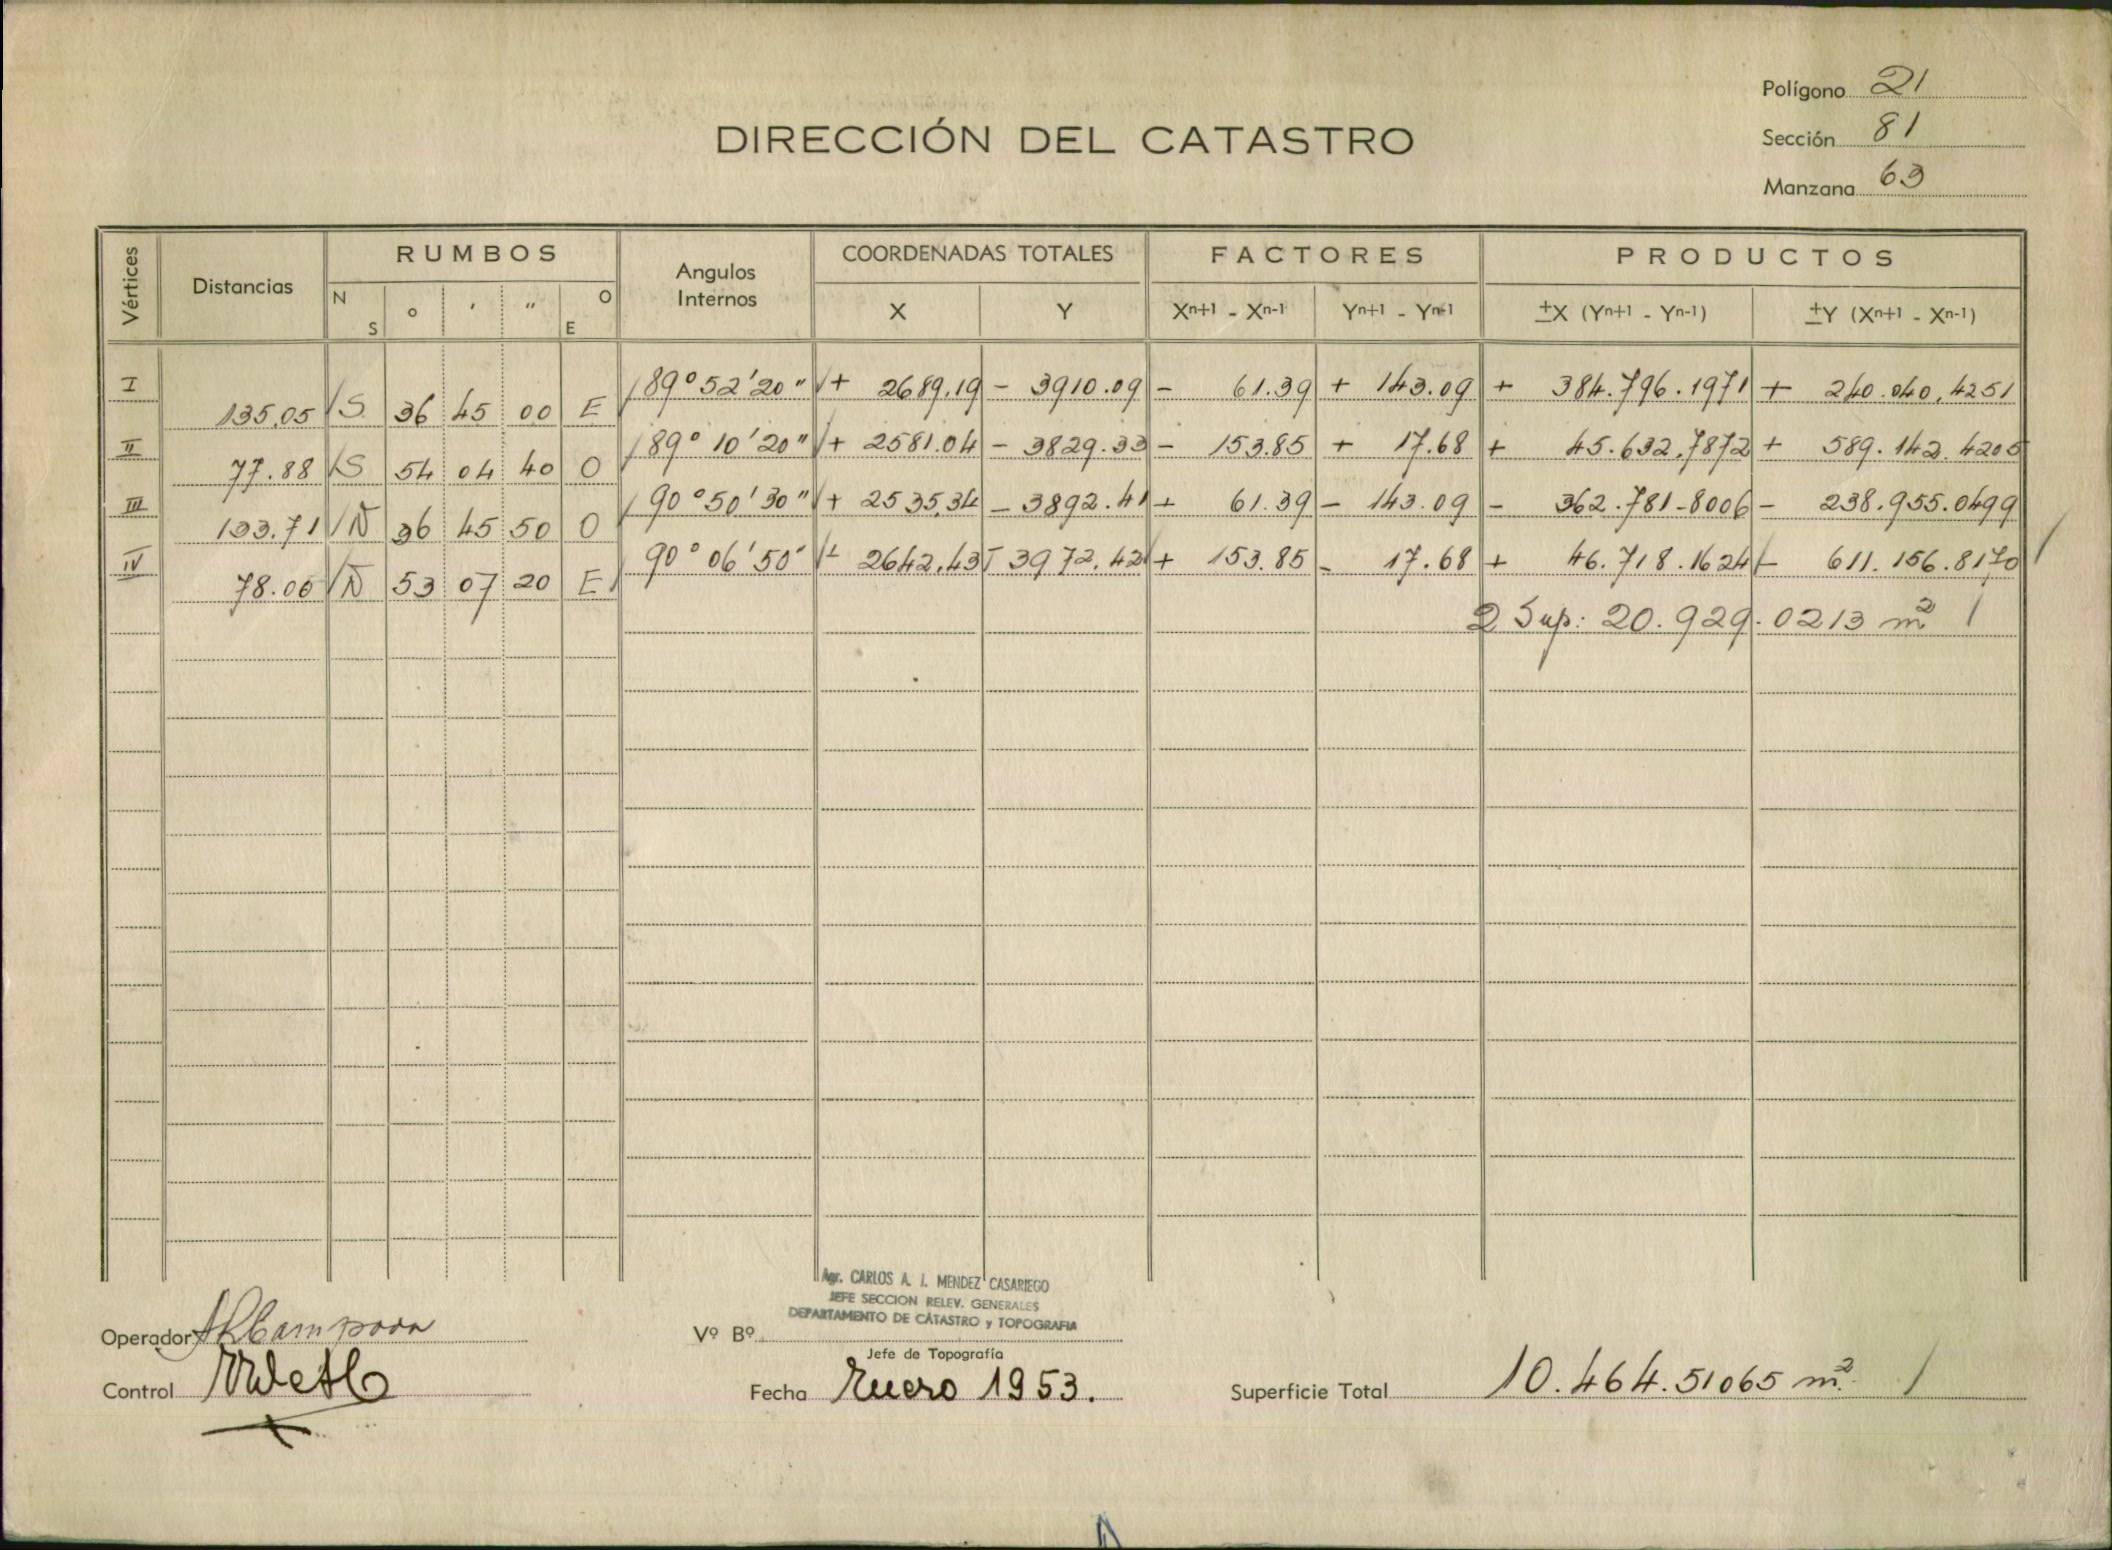 Polígono 21
DIRECCIÓN DEL CATASTRO
Sección 81
Manzana 63
Vértices Distancias RUMBOS Angulos Internos COORDENADAS TOTALES FACTORES PRODUCTOS
N S ° ' " O E X Y Xn+1 - Xn-1 Yn+1 - Yn-1 ±X (Yn+1 - Yn-1) ±Y (Xn+1 - Xn-1)
I 135.05 S 36 45 00 E 89° 52' 20" + 2689.19 - 3910.09 - 61.39 + 143.09 + 384.796.1971 + 240.040,4251
II 77.88 S 54 04 40 O 89° 10' 20" + 2581.04 - 3829.33 - 153.85 + 17.68 + 45.632,7872 + 589.142.4205
III 133.71 N 36 45 50 O 90° 50' 30" + 2535,34 - 3892.41 + 61.39 - 143.09 - 362.781.8006 - 238.955.0499
IV 78.06 N 53 07 20 E 90° 06' 50" + 2642,43 - 3972,42 + 153.85 - 17.68 + 46.718.1624 - 611.156.8170
2 Sup: 20.929.0213 m²
Agr. CARLOS A. I. MENDEZ CASARIEGO
JEFE SECCION RELEV. GENERALES
DEPARTAMENTO DE CATASTRO y TOPOGRAFIA
Operador
Vº Bº
Jefe de Topografía
Control
Fecha Enero 1953.
Superficie Total 10.464.51065 m²